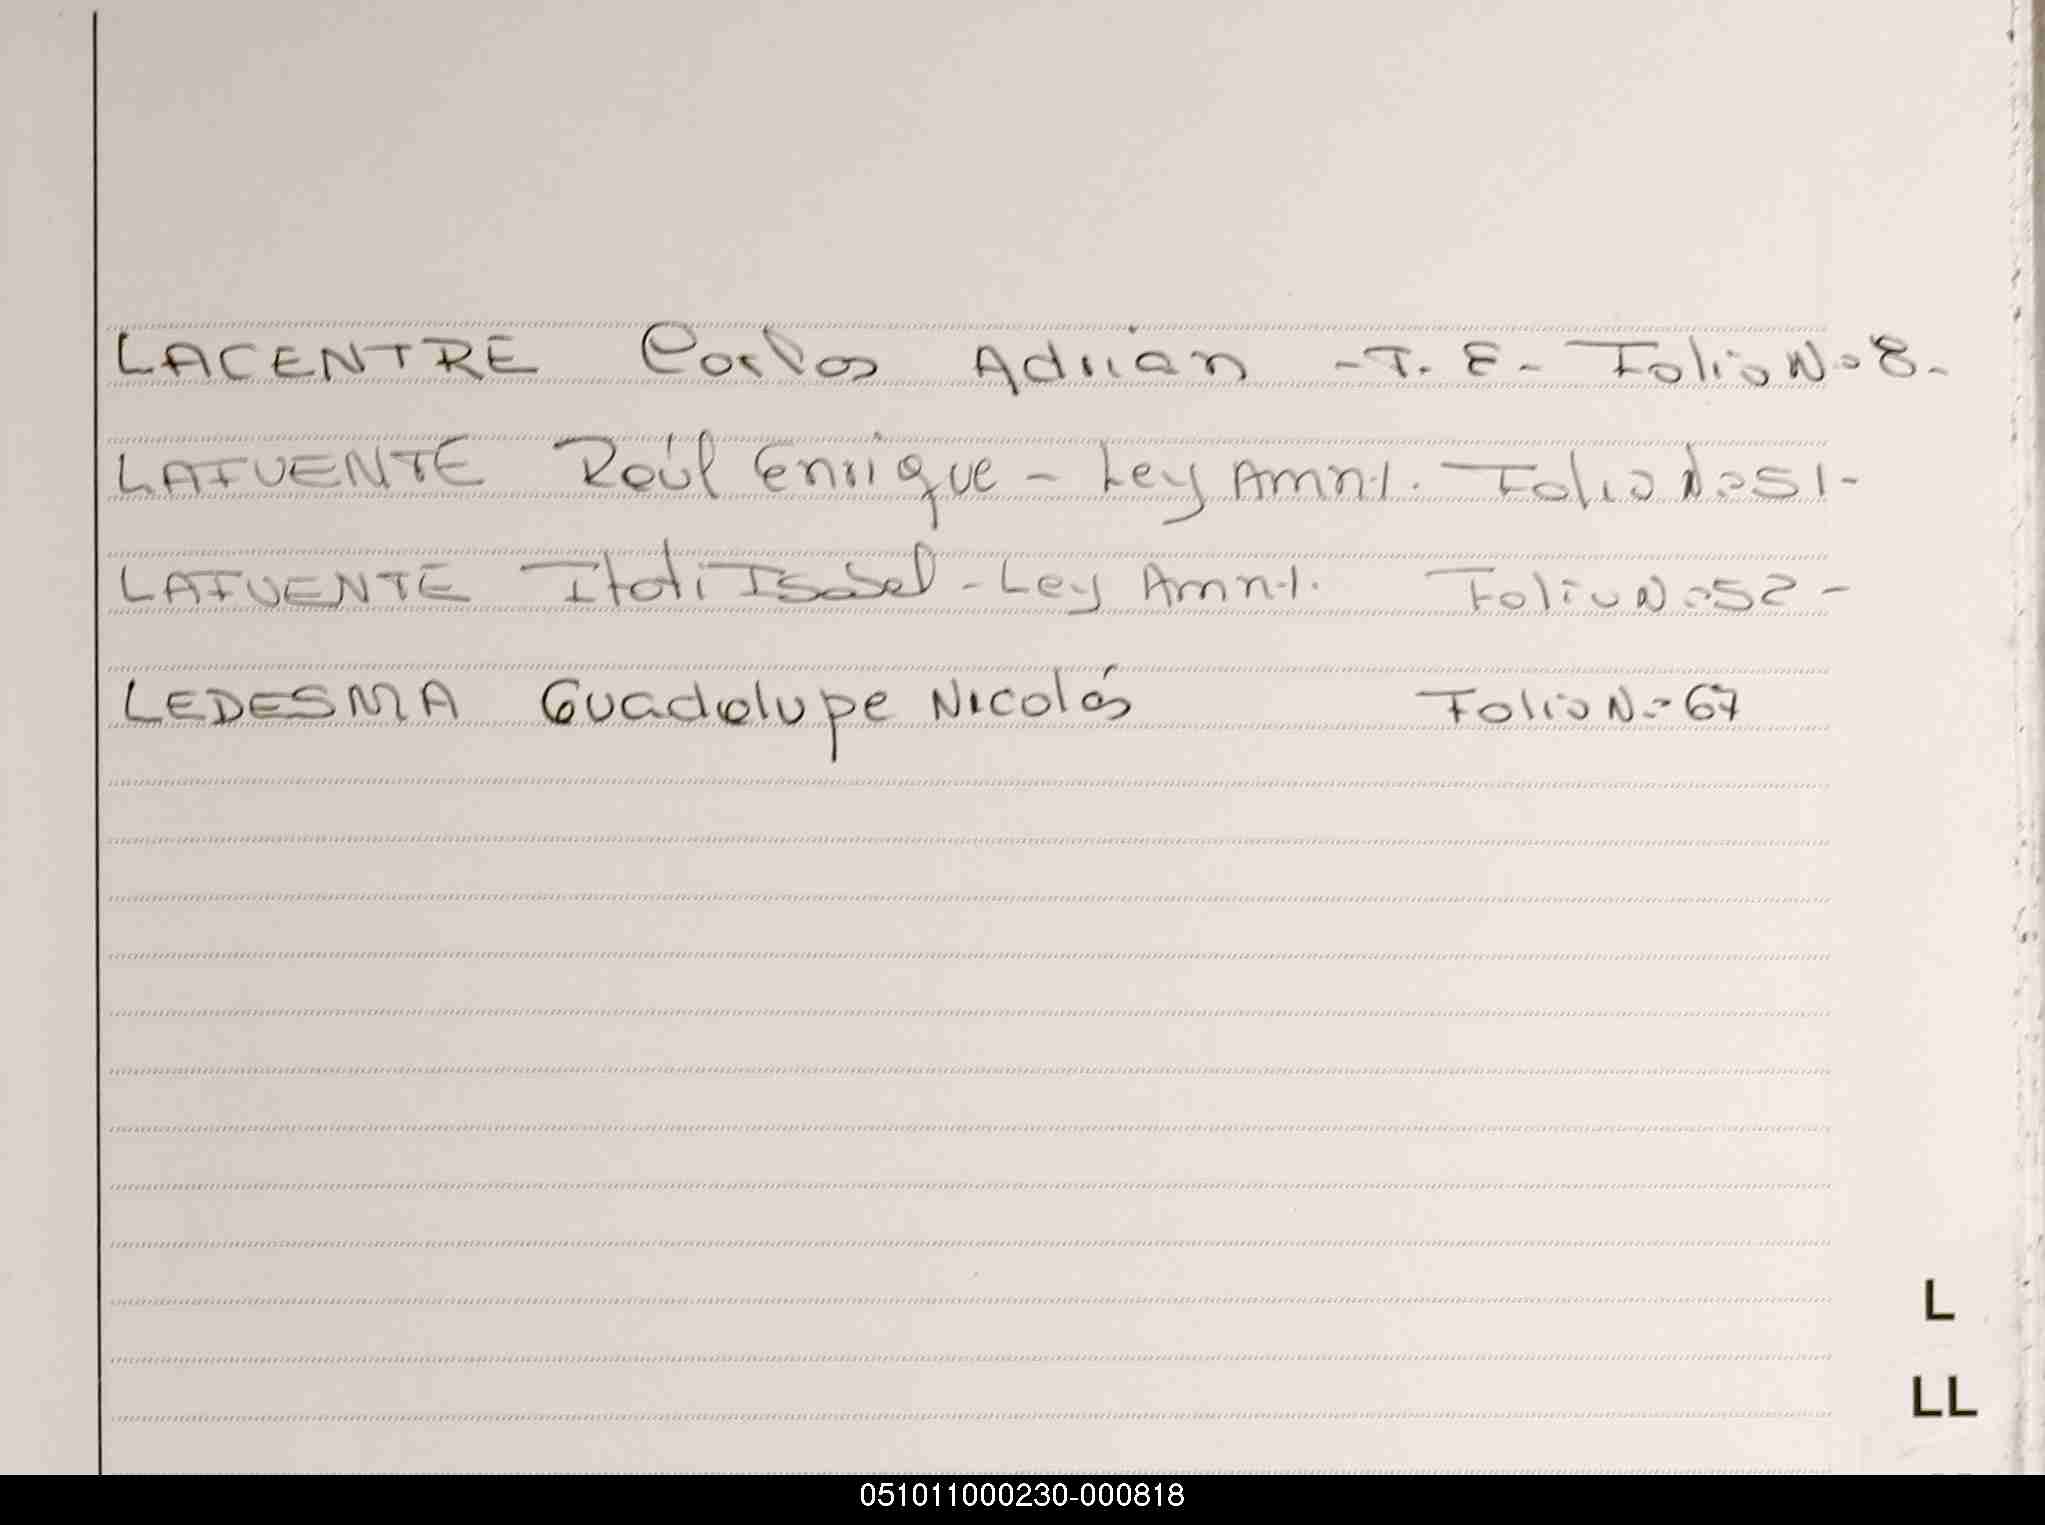 LACENTRE Carlos Adrián - T. E. - Folio Nº 8.-
LAFUENTE Raúl Enrique - Ley Amn-1. Folio Nº 51-
LAFUENTE Itatí Isabel - Ley Amn-1. Folio Nº 52-
LEDESMA Guadalupe Nicolás Folio Nº 67
L
LL
051011000230-000818